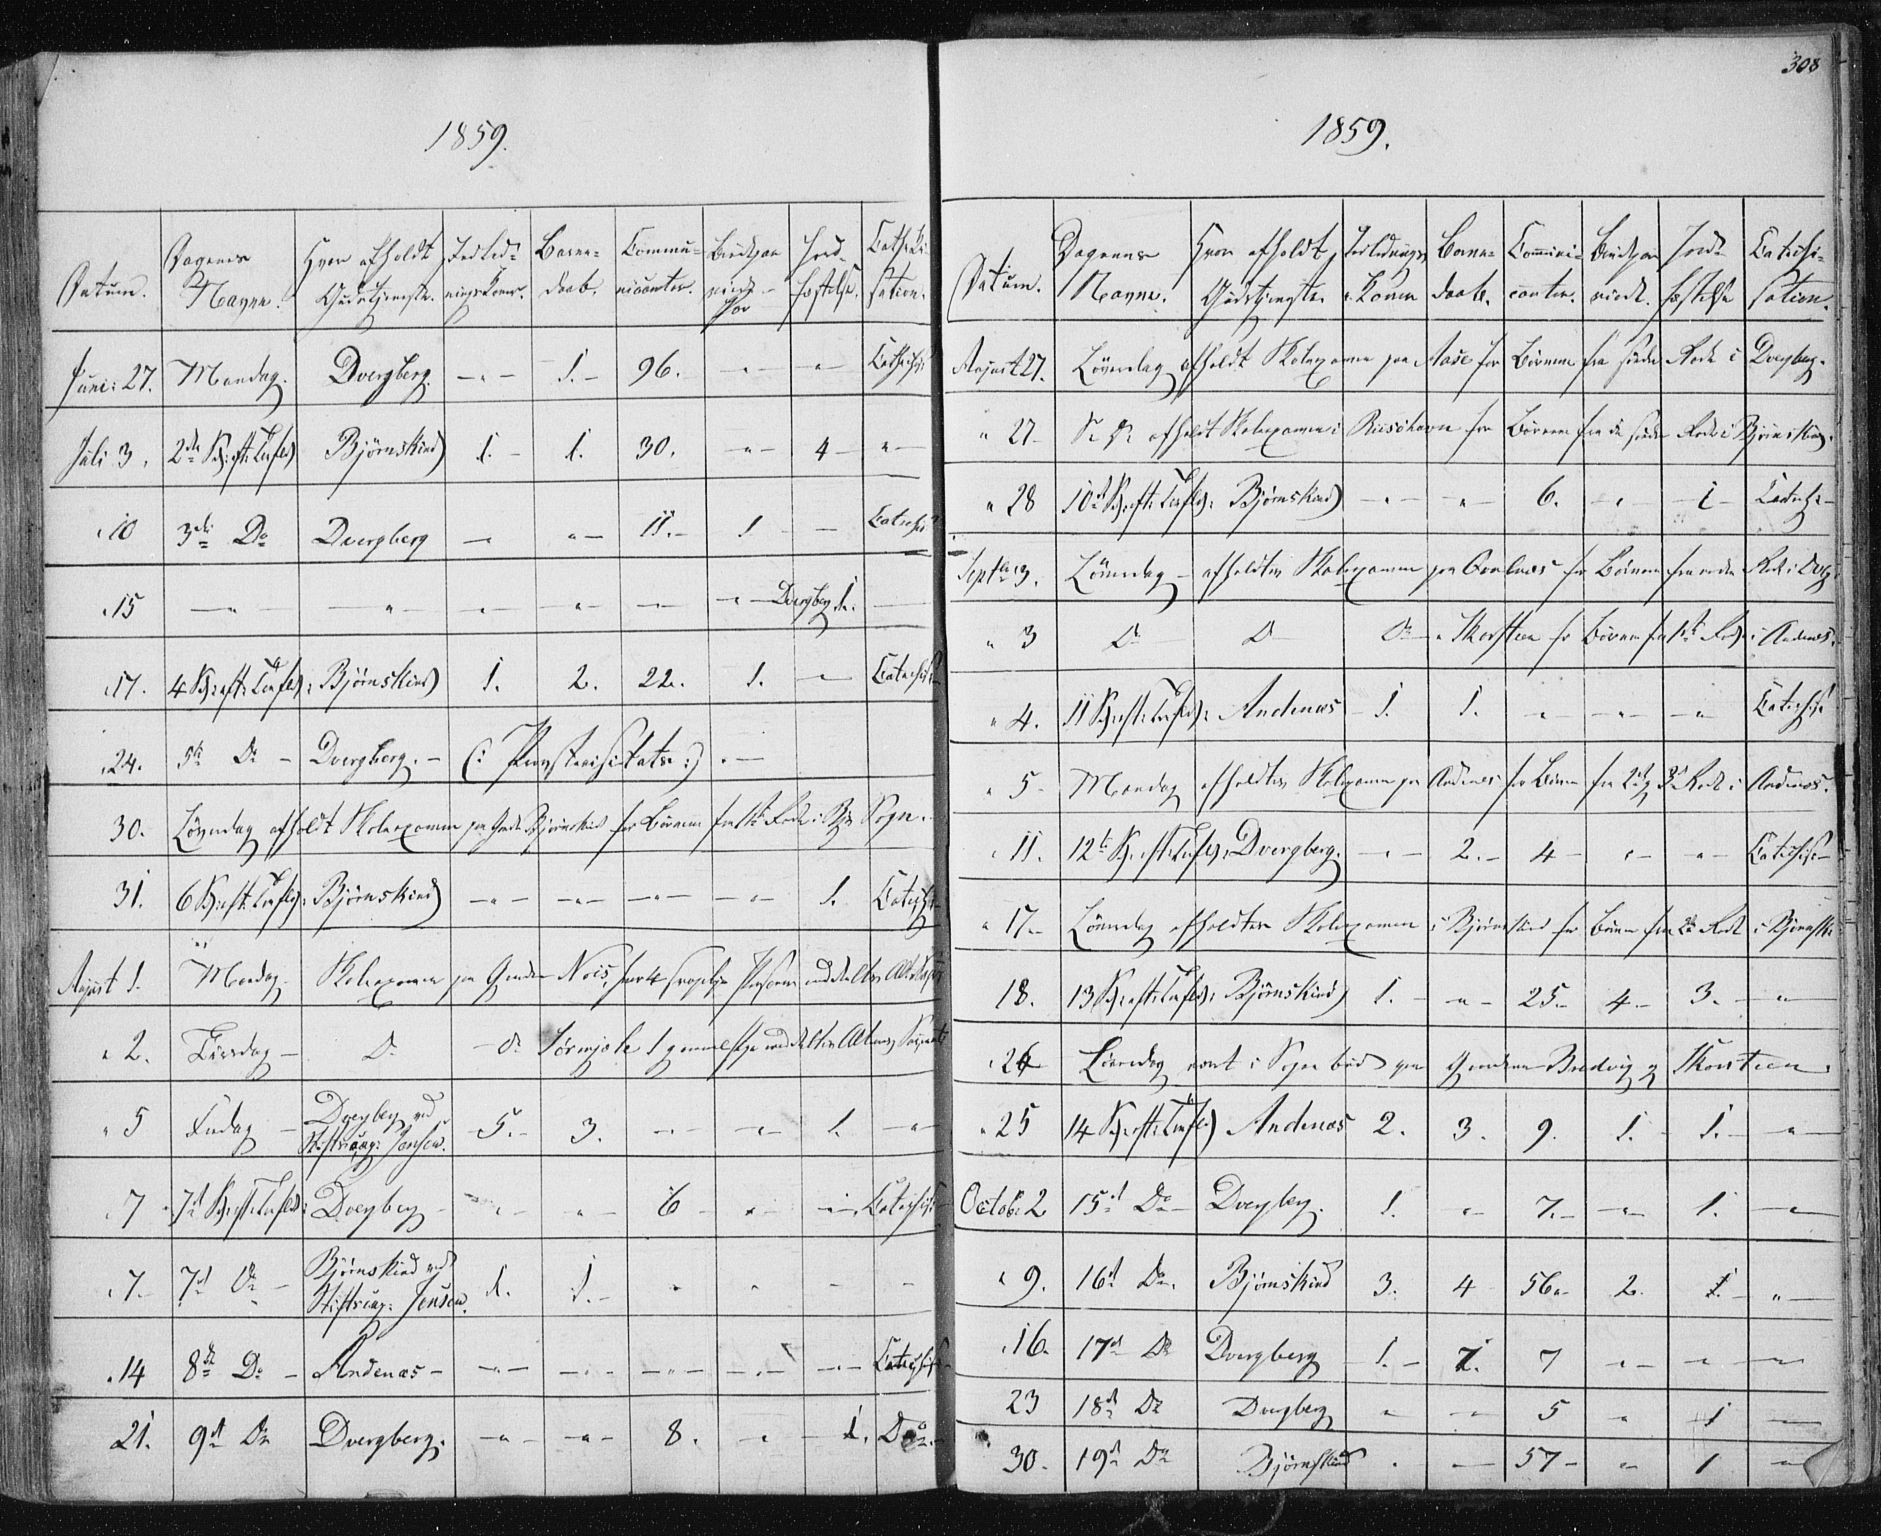 1859.
Datum. Dagenes Navne. Hvor afholdt Gudstjeneste. Indledningskoner. Barnedaab. Communicanter. Brudepar viede Jordfæstelse. Cathechisation.
Juni 27. Mandag. Dverberg. - " - 1. - 96. - " - - " - Cathechis
Juli 3. 2den S. eft. Trefold Bjørnskind 1. - 1. 30. - " - 4 - " -
" 10 3die Do Dverberg - " - 11. - 1 - Catechis
" 15 - " - " - " - " - " - " - Dverberg 1. -
" 17. 4 S. eft. Trefold: Bjørnskind 1. 2. 22. 1. - Catechis
" 24. 5te Do - Dverberg. - (: Provstevisitats :) " -
30. Løverdag afholdt Skolexamen paa Bjørnskind for Børnene fra 1ste Rode i Bjs Sogn.
31. 6 S. eft. Trefold: Bjørnskind - " - - " - - " - - " - 1. Catechis
August 1. Mandag. Skolexamen paa Gaarden Nøis, hvor 4 Personer meddeltes
" 2. Tirsdag - Do - Do 1 gammel meddeltes
" 5 Fredag - Dverberg ved Stiftscap: Jensen. 5. - 3. - " - - " - 1. - " -
" 7 7de S. eft. Trefold: Dverberg - " - " - 6 - " - - " - Catechis
" 7 7de Do - Bjørnskind ved Stiftscap: Jensen. 1. 1. - " " - -
" 14 8de Do - Andenæs - - " - - " - - " - - " - - " - Catechis
21. 9de Do Dverberg. - " - - " - 8. - " - 1. Do
308
1859.
Datum. Dagenes Navne. Hvor afholdt Gudstjeneste. Indlednings Koner Barnedaab. Communicanter. Brudepar viede. Jordfæstelse Catechisation.
August 27. Løverdag afholdt Skolexamen paa Aase for Børnene fra søndre Rode i Dverberg.
" 27 - Do Do afholdt Skolexamen i Risøehavn for Børnene fra de søndre Roder i Bjørnskind.
" 28 10de S. eft. Trefold: Bjørnskind - " - " - 6. " - 1 - Catechis -
Septbr 3. Løverdag - afholdtes Skolexamen paa for Børnene fra nordre Rode i Dvbg:
" 3 Do Do Do " Skarsteen for Børnene fra 1ste Rode i Andenæs.
" 4. 11 S. eft. Trefold: Andenæs 1. 1. " - " - " Catechis
" 5 - Mandag afholdtes Skolexamen paa Andenæs for Børnene fra 2de og 3de Rode i Andenæs.
" 11. 12te S. eft. Trefold: Dverberg. " - 2. - 4 - " - " - Catechis -
" 17. - Løverdag afholdtes Skolexamen i Bjørnskind for Børnene fra 2de Rode i Bjørnsk:
18. 13 S. eft. Trefold: Bjørnskind 1. - " - 25. - 4 - 3. - "
" 24 Løverdag var i Sognebud paa Gaardene Bredvig og Skarsteen.
" 25 14 S. eft. Trefold Andenæs 2. 3. 9. 1. - 1. - " -
October 2 15de Do - Dverberg. 1. " - 7. - - " - 1. - " -
" 9. 16de Do. Bjørnskind 3. 4 56. - 2. 1. - " -
" 16. 17de Do Dverberg 1. - 1. 7 " - " - " -
23 18de Do Dverberg " - 5 " 1 -
30. 19de Do Bjørnskind " - 57 - " - 1 " -